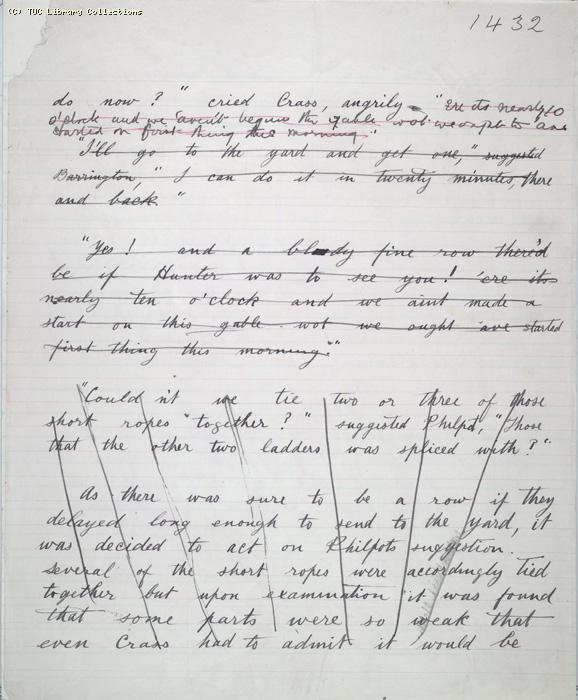 (C) TUC Library Collections
1432
do now?" cried Crass, angrily. "Ere its nearly 10
o'clock and we 'avent begun this gable wot we ought to 'ave
started on first thing this morning."
"I'll go to the yard and get one," suggested
Barrington, "I can do it in twenty minutes, there
and back."
"Yes! and a bloody fine row there'd
be if Hunter was to see you! 'ere its
nearly ten o'clock and we aint made a
start on this gable wot we ought 'ave started
first thing this morning."
"Could n't we tie two or three of those
short ropes together?" suggested Philpot, "Those
that the other two ladders was spliced with?"
As there was sure to be a row if they
delayed long enough to send to the yard, it
was decided to act on Philpots suggestion.
Several of the short ropes were accordingly tied
together but upon examination it was found
that some parts were so weak that
even Crass had to admit it would be